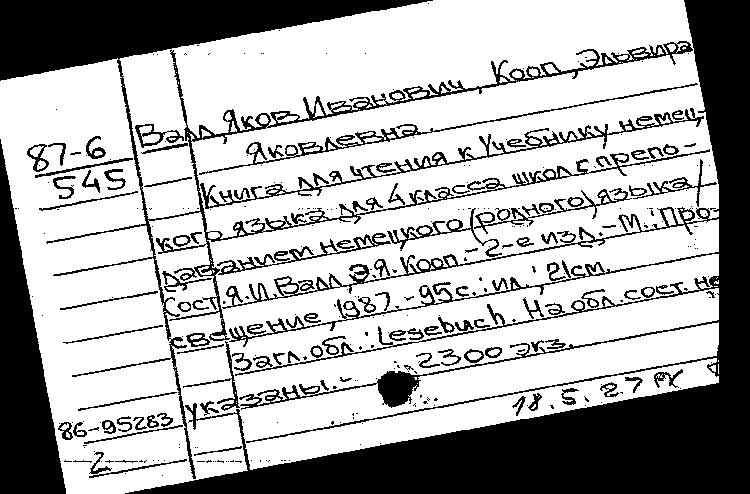 87-6
545
Валл, Яков Иванович, Кооп, Эльвира
Яковлевна.
Книга для чтения к Учебнику немец-
кого языка для 4 класса школ с препо-
даванием немецкого (родного) языка /
Сост. Я.И. Валл, Э.Я. Кооп. - 2-е изд. - М.: Про-
свещение, 1987. - 95 с. : ил. ; 21см.
Загл. обл.: Lesebuch. На обл. сост. не
указаны. - 2300 экз.
86-95283
2
18.5.27